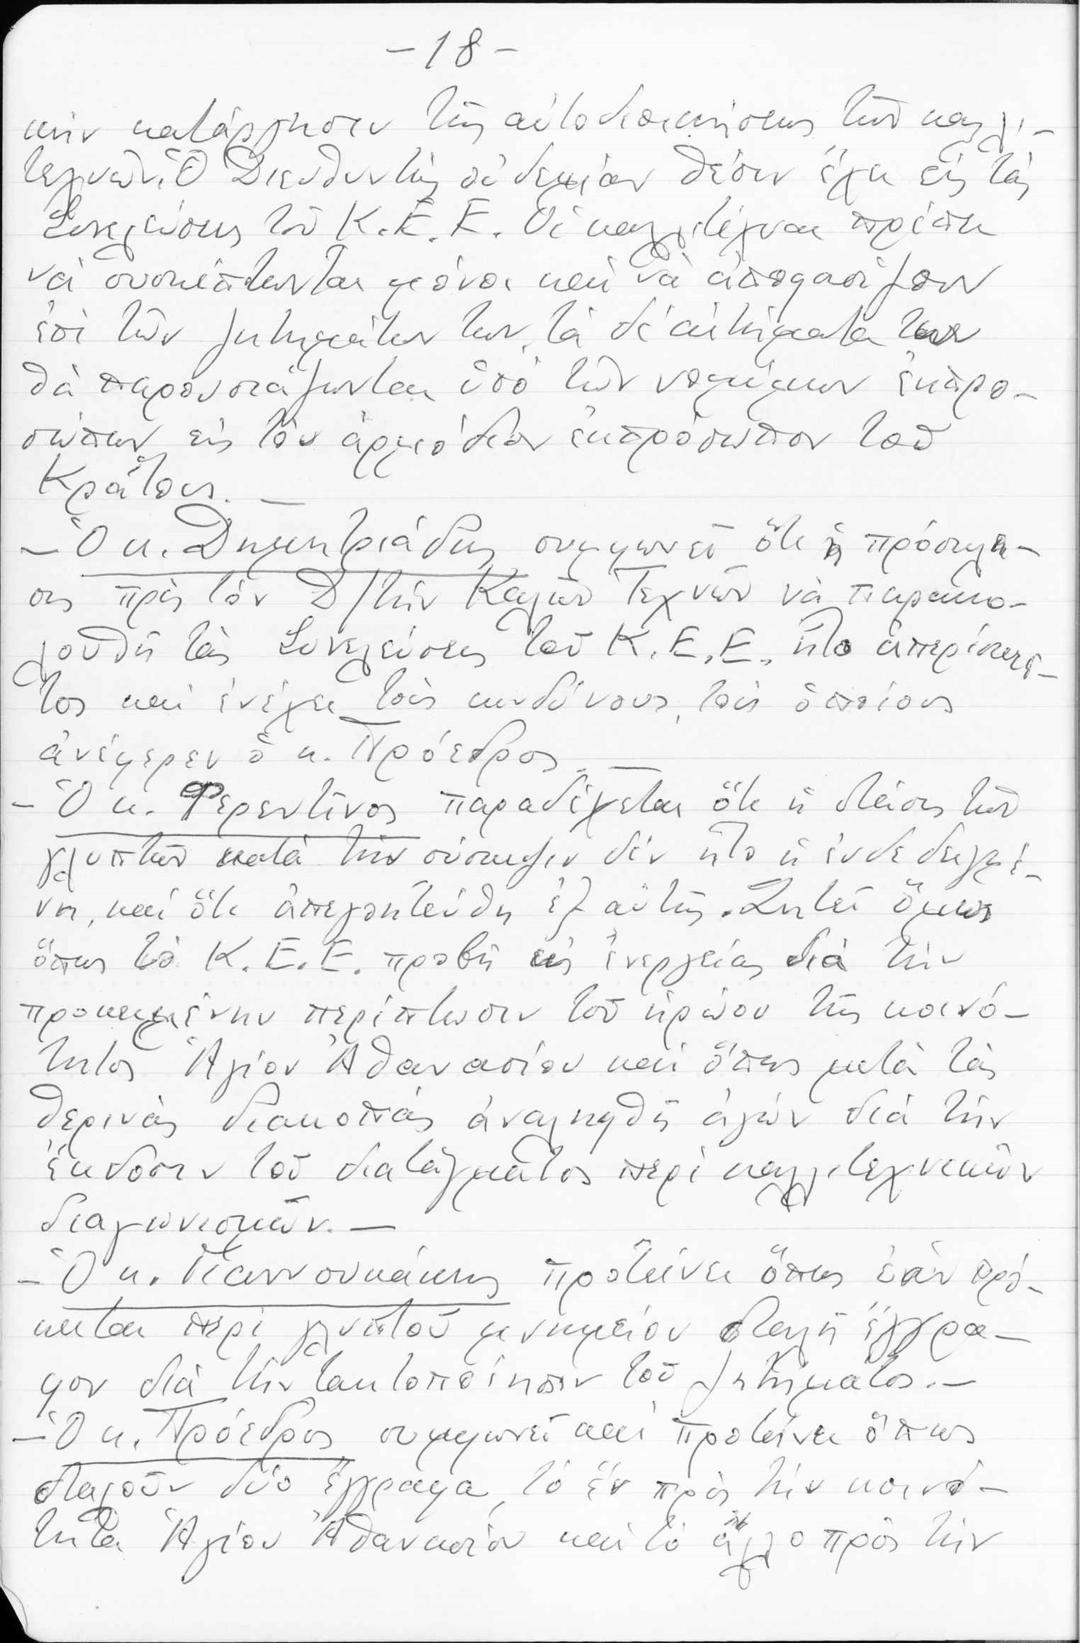 -18-
κὴν κατάργησιν τῆς αὐτοδιοικήσεως τῶν καλλι-
τεχνῶν. Ὁ Διευθυντὴς οὐδεμίαν θέσιν ἔχει εἰς τὰς
Συνελεύσεις τοῦ Κ.Ε.Ε. Οἱ καλλιτέχναι πρέπει
νὰ συσκέπτωνται μόνοι καὶ νὰ ἀποφασίζουν
ἐπὶ τῶν ζητημάτων των, τὰ δὲ αἰτήματα των
θὰ παρουσιάζωνται ὑπὸ τῶν νομίμων ἐκπρο-
σώπων εἰς τὸν ἁρμόδιον ἐκπρόσωπον τοῦ
Κράτους. —
- Ὁ κ. Δημητριάδης συμφωνεῖ ὅτι ἡ πρόσκλη-
σις πρὸς τὸν Δ/τὴν Καλῶν Τεχνῶν νὰ παρακο-
λουθῇ τὰς Συνελεύσεις τοῦ Κ.Ε.Ε. ἦτο ἀπερίσκε-
πτος καὶ ἐνέχει τοὺς κινδύνους, τοὺς ὁποίους
ἀνέφερεν ὁ κ. Πρόεδρος. —
- Ὁ κ. Φερεντῖνος παραδέχεται ὅτι ἡ στάσις τῶν
γλυπτῶν κατὰ τὴν σύσκεψιν δὲν ἦτο ἡ ἐνδεδειγμέ-
νη, καὶ ὅτι ἀπεγοητεύθη ἐξ αὐτῆς. Ζητεῖ ὅμως
ὅπως τὸ Κ.Ε.Ε. προβῇ εἰς ἐνεργείας διὰ τὴν
προκειμένην περίπτωσιν τοῦ ἡρώου τῆς κοινό-
τητος Ἁγίου Ἀθανασίου καὶ ὅπως μετὰ τὰς
θερινὰς διακοπὰς ἀναληφθῇ ἀγὼν διὰ τὴν
ἔκδοσιν τοῦ διατάγματος περὶ καλλιτεχνικῶν
διαγωνισμῶν. —
- Ὁ κ. Γιαννουκάκης προτείνει ὅπως ἐὰν πρό-
κειται περὶ γλυπτοῦ μνημείου σταλῇ ἔγγρα-
φον διὰ τὴν τακτοποίησιν τοῦ ζητήματος. —
- Ὁ κ. Πρόεδρος συμφωνεῖ καὶ προτείνει ὅπως
σταλοῦν δύο ἔγγραφα, τὸ ἓν πρὸς τὴν κοινό-
τητα Ἁγίου Ἀθανασίου καὶ τὸ ἄλλο πρὸς τὴν